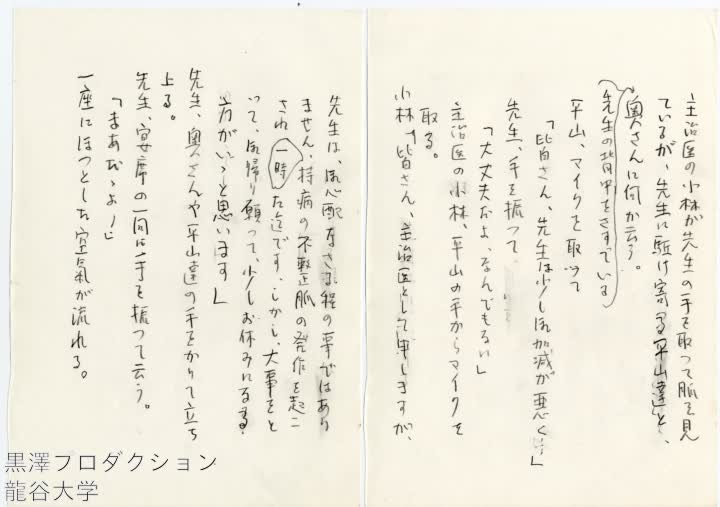 主治医の小林が先生の手を取つて脈を見
ているが、先生に駈け寄る平山達と、
奥さんに何か云う。
先生の背中をさすつている
平山、マイクを取つて
「皆さん、先生は少し御加減が悪く…」
先生、手を振つて
「大丈夫だよ、なんでもない」
主治医の小林、平山の手からマイクを
取る。
小林「皆さん、主治医として申しますが、
先生は、御心配なさる程の事ではあり
ません、持病の不整脈の発作を起こ
され一時た迄です、しかし、大事をと
つて、御帰り願つて、少しお休みになる
方がいゝと思います」
先生、奥さんや平山達の手をかりて立ち
上る。
先生、宴席の一同に手を振つて云う。
「まあだゝよ！」
一座にほつとした空氣が流れる。
黒澤プロダクション
龍谷大学